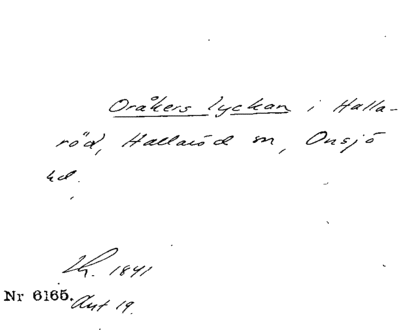 Oråkers lyckan i Halla-
röd, Hallaröd sn, Onsjö
hd.
Lh. 1841
Nr 6165. Aut 19.